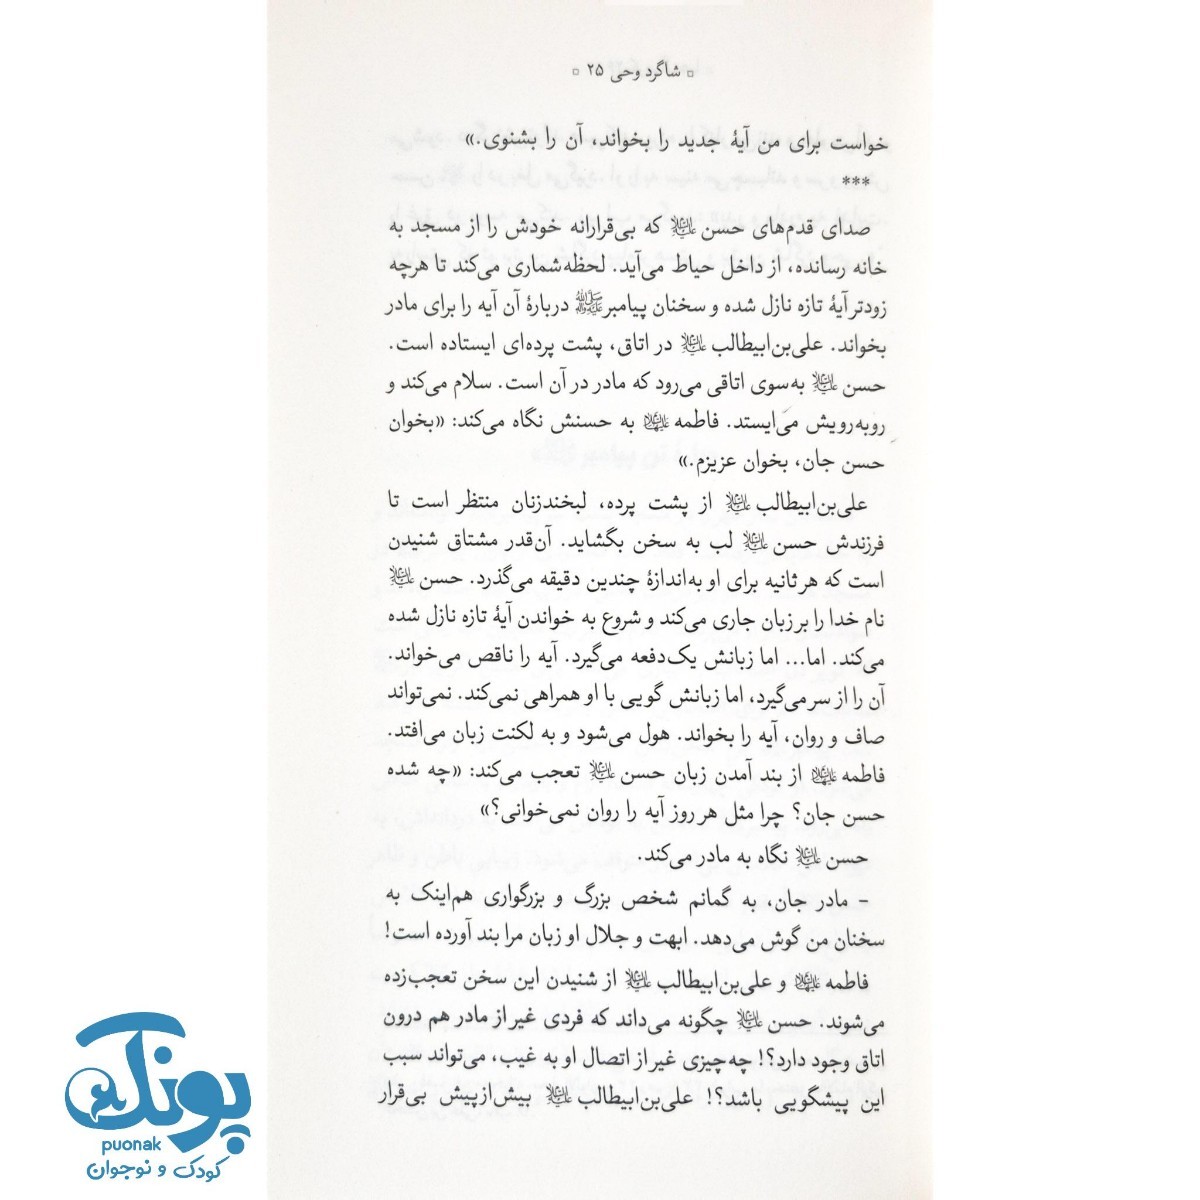 ▫ شاگرد وحی ۲۵ ▫
خواست برای من آیهٔ جدید را بخواند، آن را بشنوی.»
***
صدای قدم‌های حسن علیه‌السلام که بی‌قرارانه خودش را از مسجد به
خانه رسانده، از داخل حیاط می‌آید. لحظه‌شماری می‌کند تا هرچه
زودتر آیهٔ تازه نازل شده و سخنان پیامبر ﷺ دربارهٔ آن آیه را برای مادر
بخواند. علی‌بن‌ابیطالب علیه‌السلام در اتاق، پشت پرده‌ای ایستاده است.
حسن علیه‌السلام به‌سوی اتاقی می‌رود که مادر در آن است. سلام می‌کند و
روبه‌رویش می‌ایستد. فاطمه علیهاالسلام به حسنش نگاه می‌کند: «بخوان
حسن جان، بخوان عزیزم.»
علی‌بن‌ابیطالب علیه‌السلام از پشت پرده، لبخندزنان منتظر است تا
فرزندش حسن علیه‌السلام لب به سخن بگشاید. آن‌قدر مشتاق شنیدن
است که هر ثانیه برای او به‌اندازهٔ چندین دقیقه می‌گذرد. حسن علیه‌السلام
نام خدا را بر زبان جاری می‌کند و شروع به خواندن آیهٔ تازه نازل شده
می‌کند. اما... اما زبانش یک‌دفعه می‌گیرد. آیه را ناقص می‌خواند.
آن را از سر می‌گیرد، اما زبانش گویی با او همراهی نمی‌کند. نمی‌تواند
صاف و روان، آیه را بخواند. هول می‌شود و به لکنت زبان می‌افتد.
فاطمه علیهاالسلام از بند آمدن زبان حسن علیه‌السلام تعجب می‌کند: «چه شده
حسن جان؟ چرا مثل هر روز آیه را روان نمی‌خوانی؟»
حسن علیه‌السلام نگاه به مادر می‌کند.
- مادر جان، به گمانم شخص بزرگ و بزرگواری هم‌اینک به
سخنان من گوش می‌دهد. ابهت و جلال او زبان مرا بند آورده است!
فاطمه علیهاالسلام و علی‌بن‌ابیطالب علیه‌السلام از شنیدن این سخن تعجب‌زده
می‌شوند. حسن علیه‌السلام چگونه می‌داند که فردی غیر از مادر هم درون
اتاق وجود دارد؟! چه‌چیزی غیر از اتصال او به غیب، می‌تواند سبب
این پیشگویی باشد؟! علی‌بن‌ابیطالب علیه‌السلام بیش‌ازپیش بی‌قرار
پونک
puonak
کودک و نوجوان